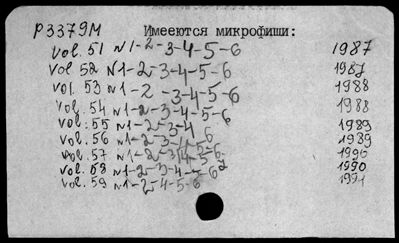 Р3379М Имееются микрофиши:
vol. 51 N1-2-3-4-5-6 1987
vol 52 N1-2-3-4-5-6 1987
vol. 53 N1-2-3-4-5-6 1988
vol. 54 N1-2-3-4-5-6 1988
vol. 55 N1-2-3-4 1989
vol. 56 N1-2-3-4-5-6 1989
vol. 57 N1-2-3-4-5-6 1990
vol. 58 N1-2-3-4-5-6 1990
vol. 59 N1-2-4-5-6 1991